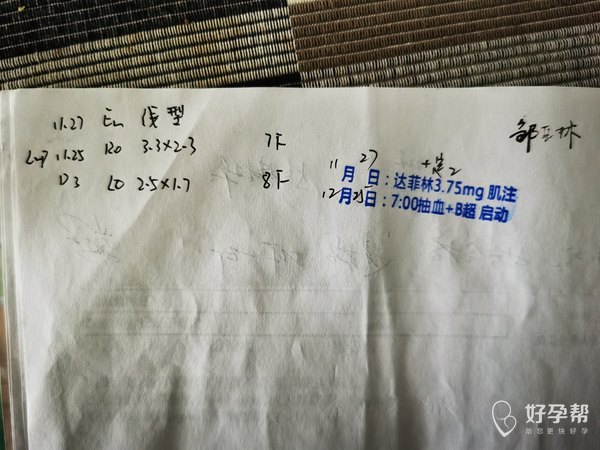 11.27 En 线型
Lmp 11.25 RO 3.3×2.3 7F
D3 LO 2.5×1.7 8F
11月27日：达菲林3.75mg 肌注
12月25日：7:00抽血+B超 启动
好孕帮
助您更快好孕